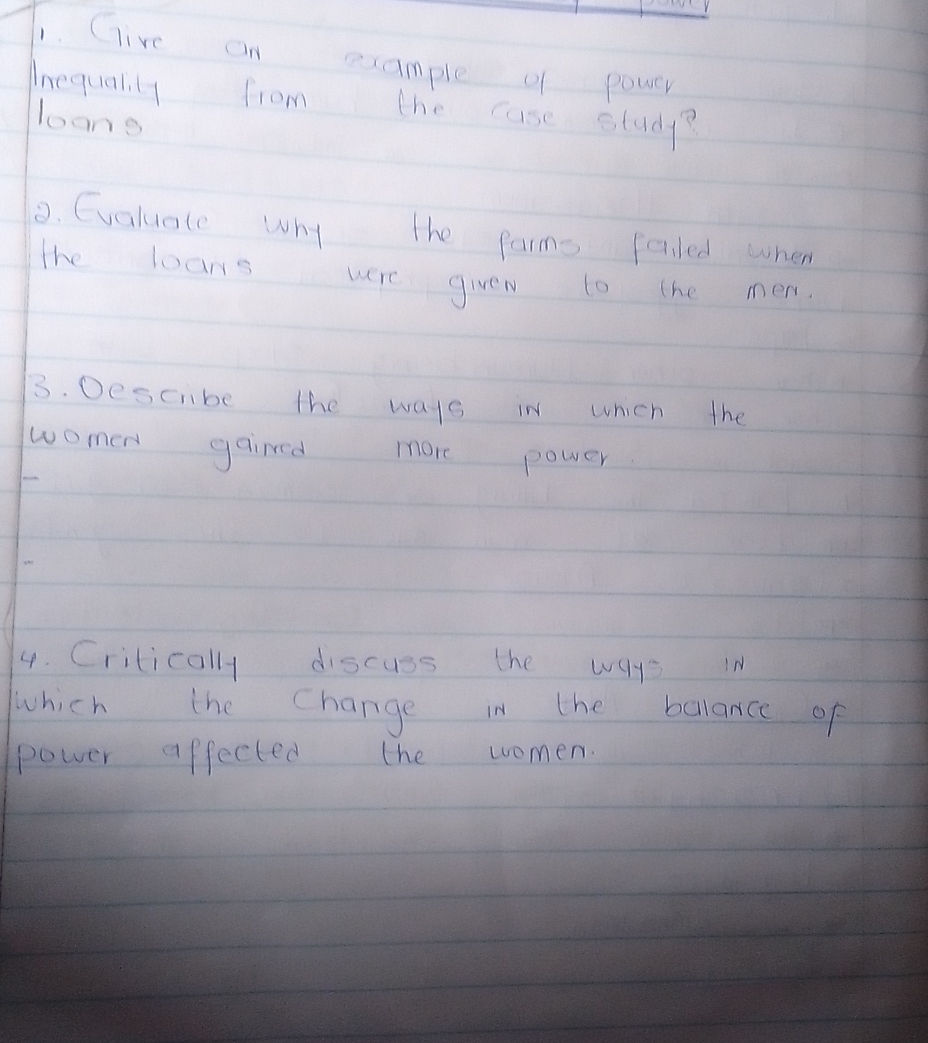 power
1. Give an example of power
Inequality from the case study?
loans
2. Evaluate why the farms failed when
the loans were given to the men.
3. Describe the ways in which the
women gained more power.
-
-
4. Critically discuss the ways in
which the Change in the balance of
power affected the women.